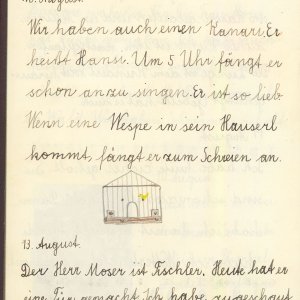 August.
Wir haben auch einen Kanari. Er
heißt Hansi. Um 5 Uhr fängt er
schon an zu singen. Er ist so lieb.
Wenn eine Wespe in sein Hauserl
kommt, fängt er zum Schreien an.
13. August.
Der Herr Moser ist Tischler. Heute hat er
eine Tür gemacht. Ich habe zugeschaut